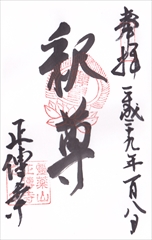 奉拝
平成二十九年一月八日
釈尊
正傳寺